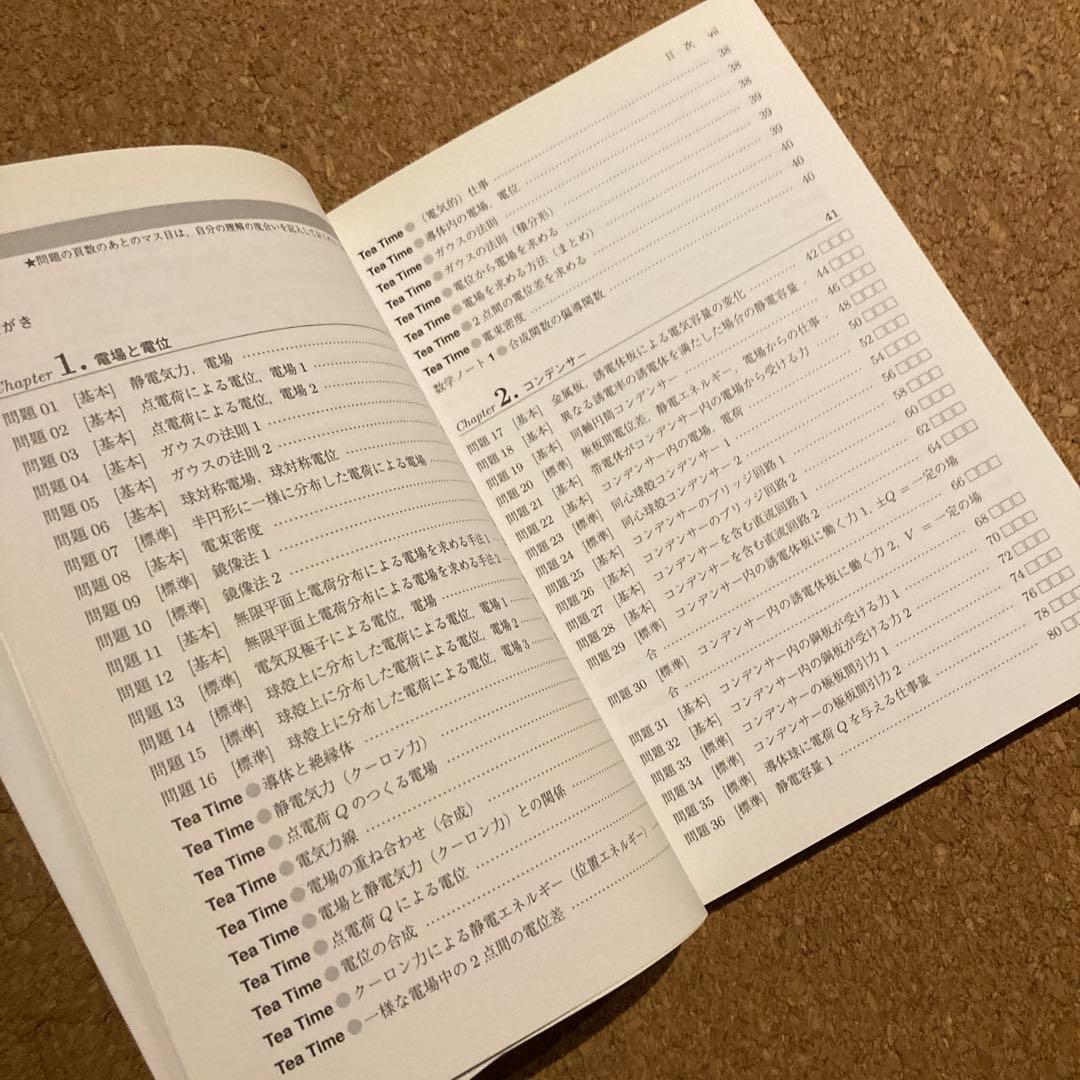 ★問題の頁数のあとのマス目は，自分の理解の度合いを記入してお
がき
Chapter 1. 電場と電位
問題 01 [基本] 静電気力，電場
問題 02 [基本] 点電荷による電位，電場 1
問題 03 [基本] 点電荷による電位，電場 2
問題 04 [基本] ガウスの法則 1
問題 05 [基本] ガウスの法則 2
問題 06 [基本] 球対称電場，球対称電位
問題 07 [標準] 半円形に一様に分布した電荷による電場
問題 08 [基本] 電束密度
問題 09 [標準] 鏡像法 1
問題 10 [標準] 鏡像法 2
問題 11 [基本] 無限平面上電荷分布による電場を求める手法 1
問題 12 [基本] 無限平面上電荷分布による電場を求める手法 2
問題 13 [標準] 電気双極子による電位，電場
問題 14 [標準] 球殻上に分布した電荷による電位，電場 1
問題 15 [標準] 球殻上に分布した電荷による電位，電場 2
問題 16 [標準] 球殻上に分布した電荷による電位，電場 3
Tea Time ● 導体と絶縁体
Tea Time ● 静電気力（クーロン力）
Tea Time ● 点電荷 Q のつくる電場
Tea Time ● 電気力線
Tea Time ● 電場の重ね合わせ（合成）
Tea Time ● 電場と静電気力（クーロン力）との関係
Tea Time ● 点電荷 Q による電位
Tea Time ● 電位の合成
Tea Time ● クーロン力による静電エネルギー（位置エネルギー）
Tea Time ● 一様な電場中の 2 点間の電位差
目 次 vii
Tea Time ● （電気的）仕事 38
Tea Time ● 導体内の電場，電位 38
Tea Time ● ガウスの法則 38
Tea Time ● ガウスの法則（積分形） 39
Tea Time ● 電位から電場を求める 39
Tea Time ● 電場を求める方法（まとめ） 39
Tea Time ● 2 点間の電位差を求める 40
Tea Time ● 電束密度 40
数学ノート 1 ● 合成関数の偏導関数 40
Chapter 2. コンデンサー 41
問題 17 [基本] 金属板，誘電体板による電気容量の変化 42 □□□
問題 18 [基本] 異なる誘電率の誘電体を満たした場合の静電容量 44 □□□
問題 19 [基本] 同軸円筒コンデンサー 46 □□□
問題 20 [標準] 極板間電位差，静電エネルギー，電場からの仕事 48 □□□
問題 21 [基本] 帯電体がコンデンサー内の電場から受ける力 50 □□□
問題 22 [基本] コンデンサー内の電場，電荷 52 □□□
問題 23 [標準] 同心球殻コンデンサー 1 54 □□□
問題 24 [標準] 同心球殻コンデンサー 2 56 □□□
問題 25 [基本] コンデンサーのブリッジ回路 1 58 □□□
問題 26 [基本] コンデンサーのブリッジ回路 2 60 □□□
問題 27 [基本] コンデンサーを含む直流回路 1 62 □□□
問題 28 [基本] コンデンサーを含む直流回路 2 64 □□□
問題 29 [標準] コンデンサー内の誘電体板に働く力 1, ±Q = 一定の場
合 66 □□□
問題 30 [標準] コンデンサー内の誘電体板に働く力 2, V = 一定の場
合 68 □□□
問題 31 [基本] コンデンサー内の銅板が受ける力 1 70 □□□
問題 32 [基本] コンデンサー内の銅板が受ける力 2 72 □□□
問題 33 [標準] コンデンサーの極板間引力 1 74 □□□
問題 34 [標準] コンデンサーの極板間引力 2 76 □□□
問題 35 [標準] 導体球に電荷 Q を与える仕事量 78 □□□
問題 36 [標準] 静電容量 1 80 □□□